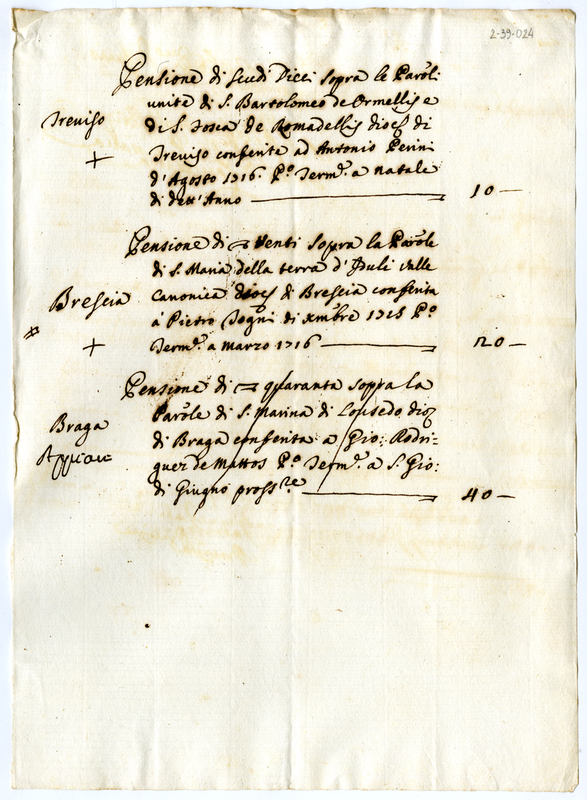 2-39-024
Pensione di Scudi Dieci sopra le Paroli
unite di S. Bartolomeo de Ormellis e
Treviso
di S. Tosca de Romadellis dioc. di
+
Treviso conferite ad Antonio Perini
d'Agosto 1716. P.o Term.e a natale
di dett'Anno 10
Pensione di Venti sopra la Parole
di S. Maria della terra d' valle
Brescia
Canonica dioc. di Brescia conferita
a Pietro Togni di Xmbre 1715 P.o
+
Term.e a Marzo 1716 20
Pensione di quaranta sopra la
Parole di S. Marina di Lousedo dioc.
Braga
di Braga conferita a Gio: Rodri-
guez de Mattos P.o Term.e a S. Gio:
di Giugno pross.re 40